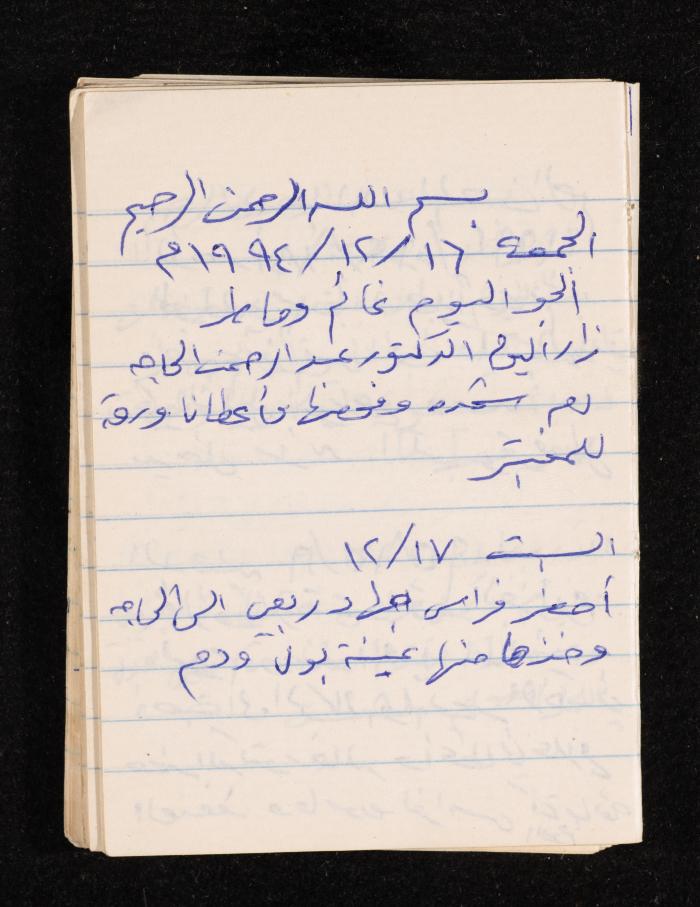 بسم الله الرحمن الرحيم
الجمعة ١٦/١٢/١٩٩٤م
الجو اليوم غائم وماطر
زار اليوم الدكتور عبد الرحمن الحاجه
ام وفحصها وأعطانا ورقة
للمختبر
السبت ١٢/١٧
أحضر فراس الى الحاجه
وخذ منها عينة بول ودم